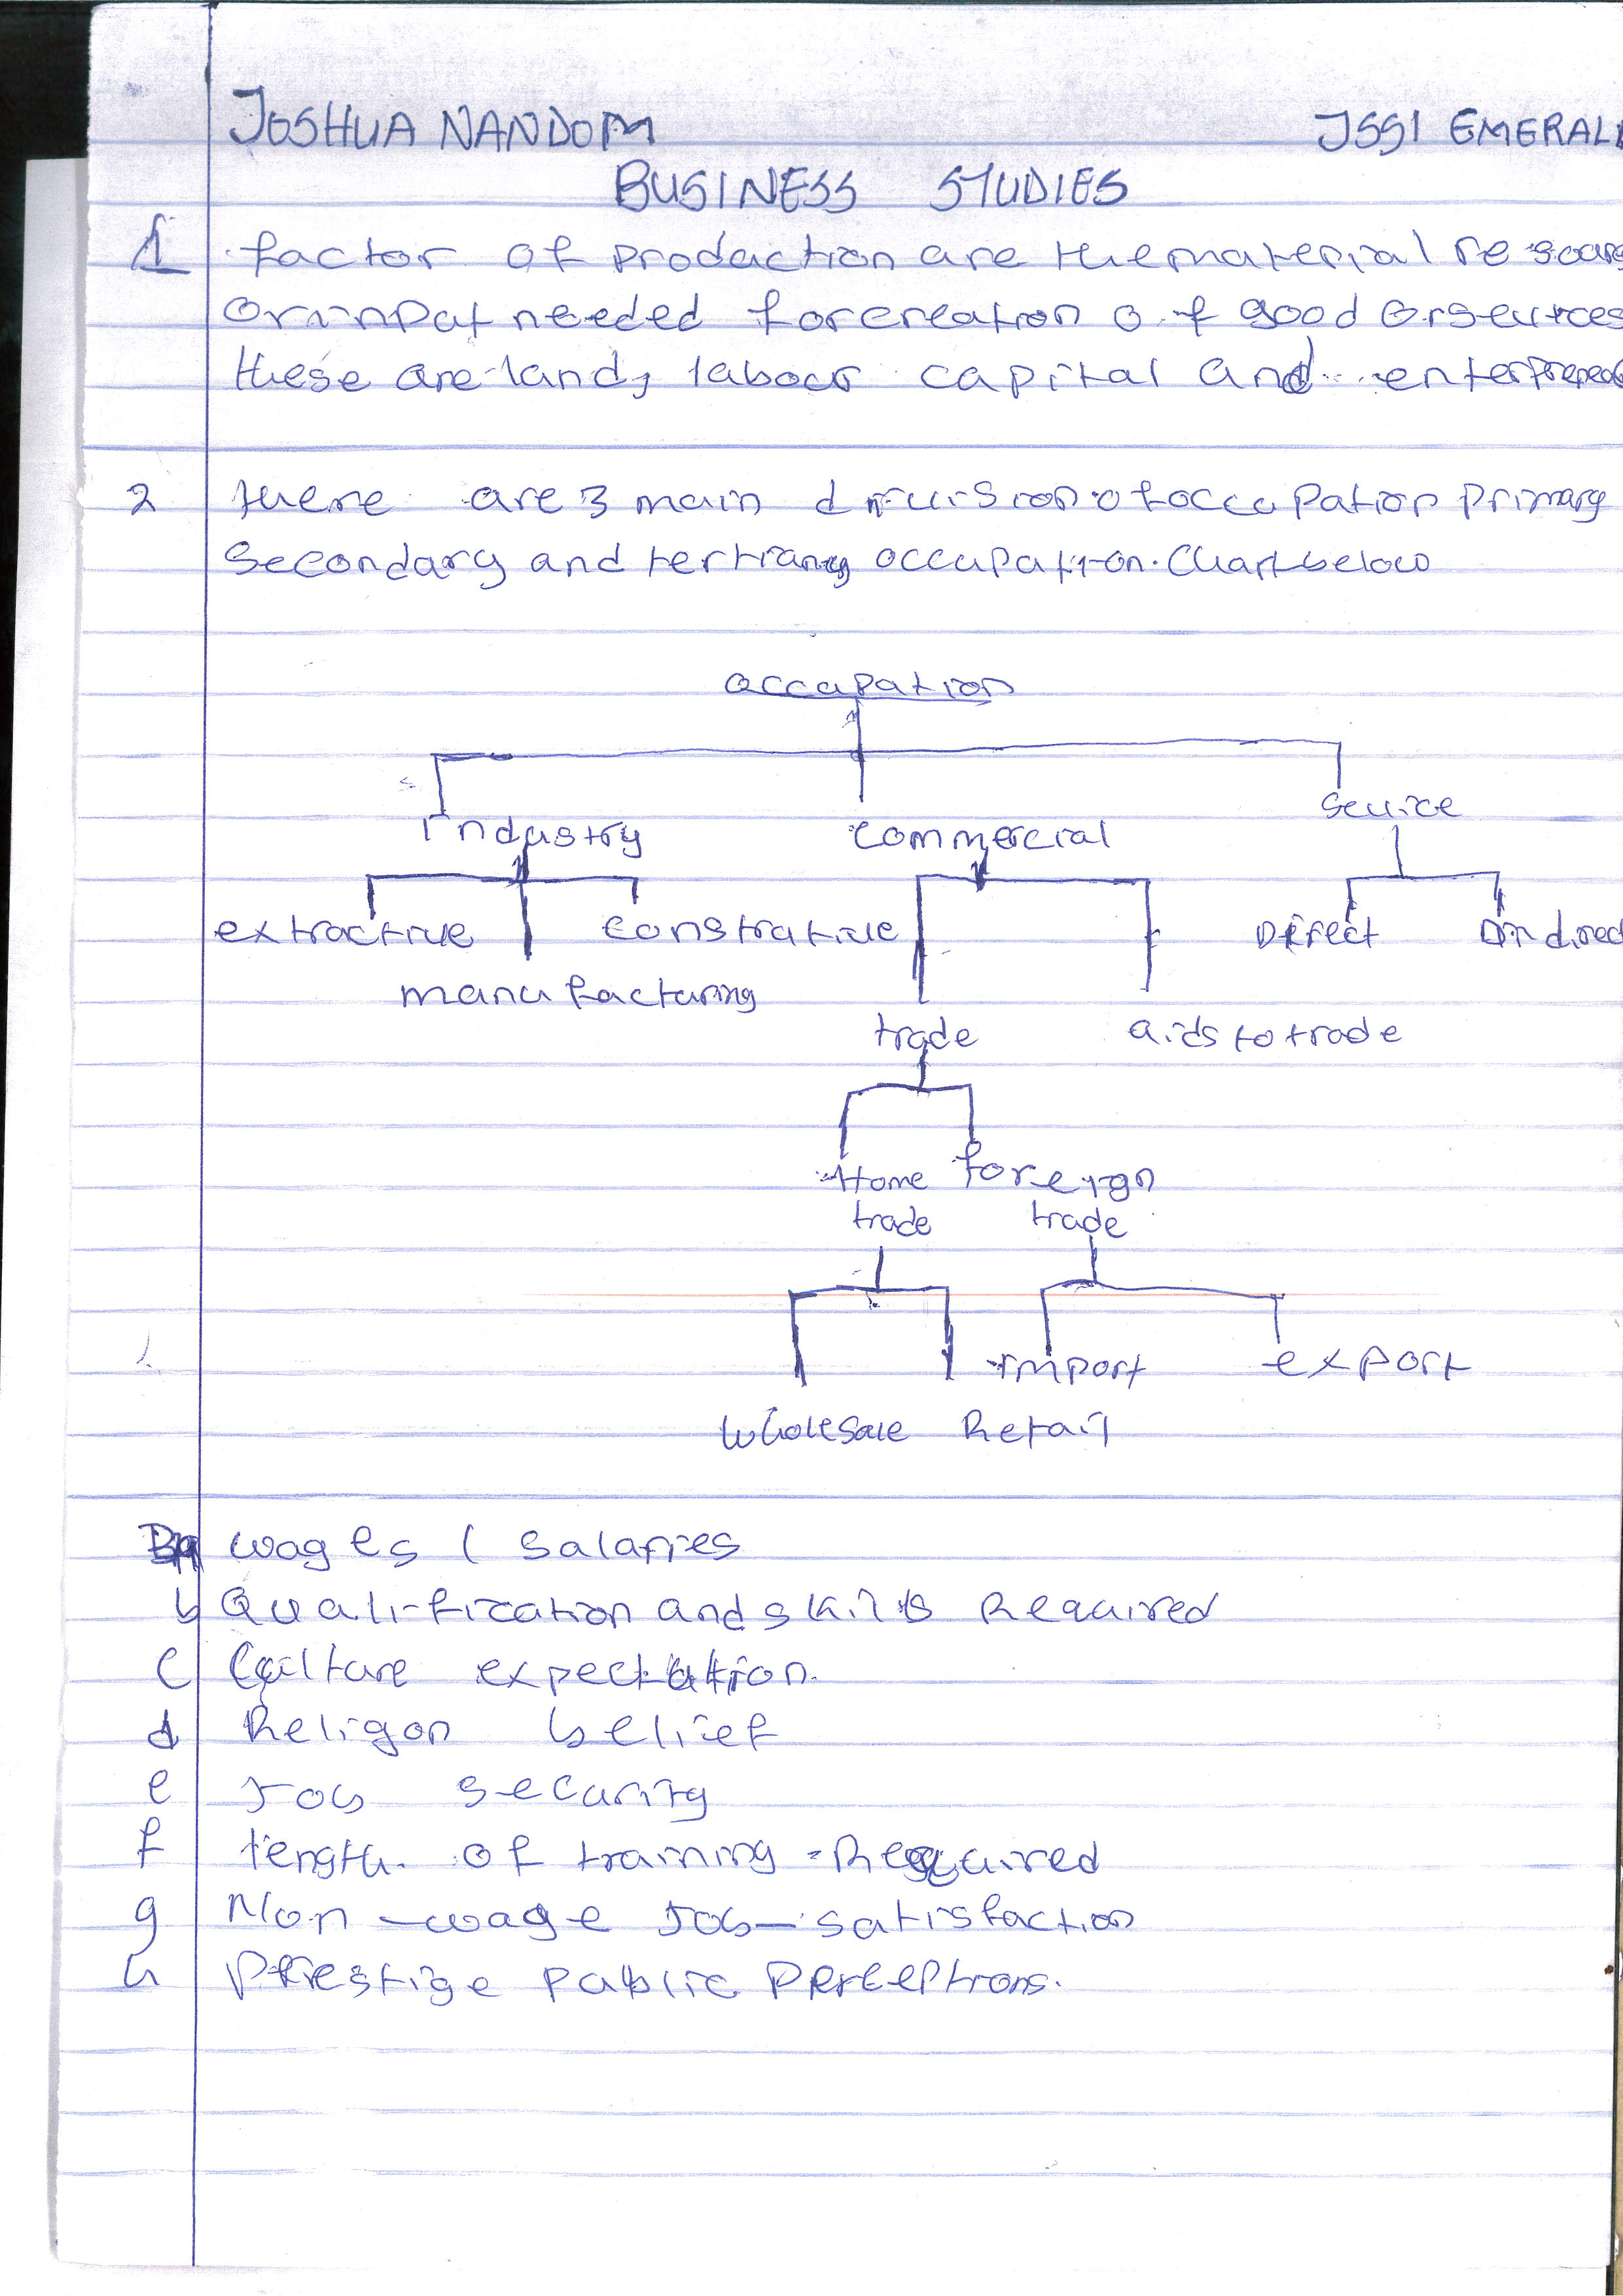 JOSHUA NANDOM JSS1 EMERAL
BUSINESS STUDIES
1 factor of production are the material resour
or input needed for creation of good or services
these are land, labour capital and
2 there are 3 main division of occupation primary
Secondary and tertiary occupation. Chart below
occupation
Industry commercial Service
extractive constrative Direct Indirec
manufacturing
trade aids to trade
Home foreign
trade trade
import export
wholesale Retail
wages ( salaries
b Qualification and skills Required
c Culture expectation.
d Religon belief
e Job security
f length of training Required
g Non-wage Job-satisfaction
h prestige public perceptions.